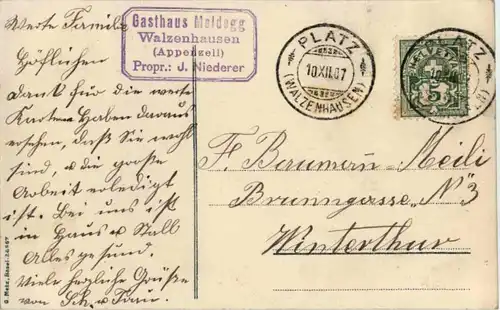 Werte Familie
Höflichen
Dank für die werte
Karten Haben daraus
ersehen, daß Sie wohl
sind, u die große
Arbeit erledigt
ist. Bei uns ist
in Haus u Stall
Alles gesund.
Viele herzliche Grüße
von Sch. u Frau.
Gasthaus Meldegg
Walzenhausen
(Appenzell)
Propr.: J. Niederer
PLATZ
10.XII.07
(WALZENHAUSEN)
PLATZ
HELVETIA
5
F. Baumann-Meili
Brunngasse N° 3
Winterthur
G. Metz, Basel.